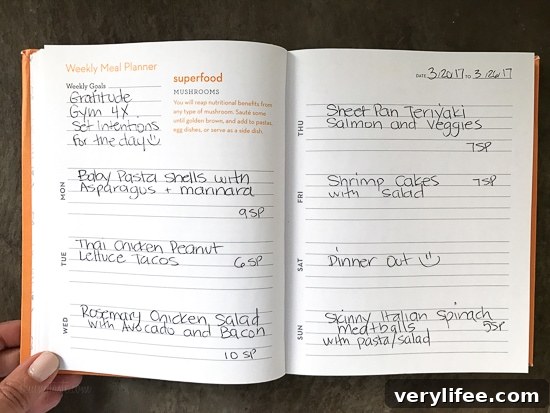 Weekly Meal Planner
Weekly Goals
Gratitude
Gym 4x
Set Intentions
for the day
superfood
MUSHROOMS
You will reap nutritional benefits from
any type of mushroom. Sauté some
until golden brown, and add to pastas,
egg dishes, or serve as a side dish.
MON
Baby Pasta Shells with
Asparagus + marinara
9SP
TUE
Thai Chicken Peanut
Lettuce Tacos 6SP
WED
Rosemary Chicken Salad
with Avocado and Bacon
10 SP
DATE 3/20/17 TO 3/26/17
THU
Sheet Pan Teriyaki
Salmon and Veggies
7SP
FRI
Shrimp Cakes 7SP
with Salad
SAT
Dinner Out
SUN
Skinny Italian Spinach
meatballs 5SP
with pasta/salad
verylifee.com